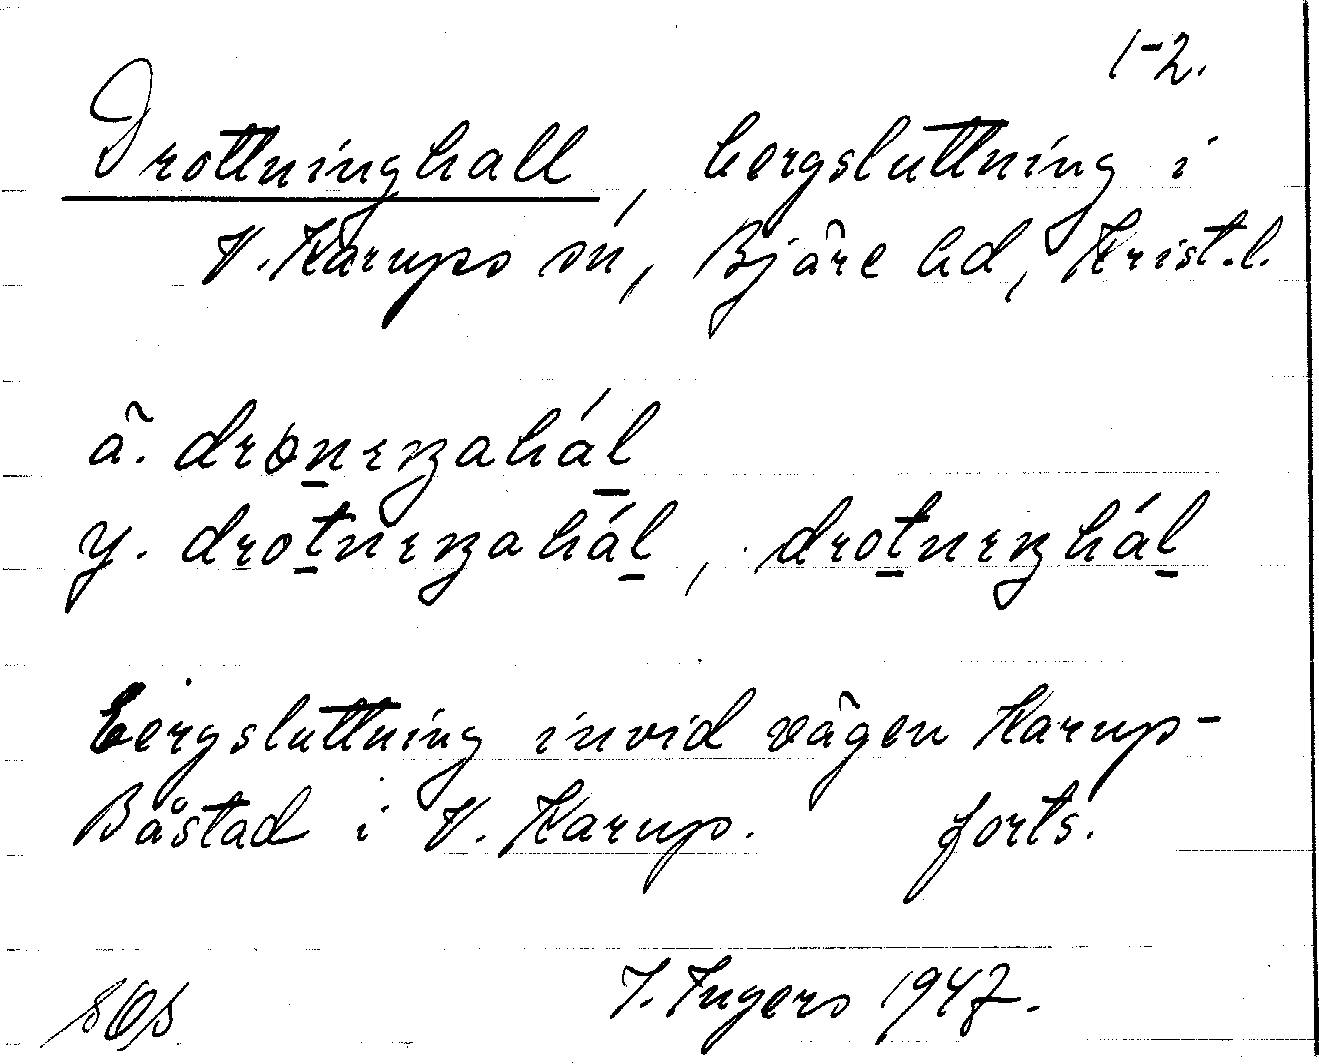 1-2.
Drottninghall, bergsluttning i
V. Karups sn, Bjäre hd, Krist. l.
ä. dronıŋahál
y. drotnıŋahál, drotnıŋhál
bergsluttning invid vägen Karup-
Båstad i V. Karup. forts.
I. Ingers 1947.